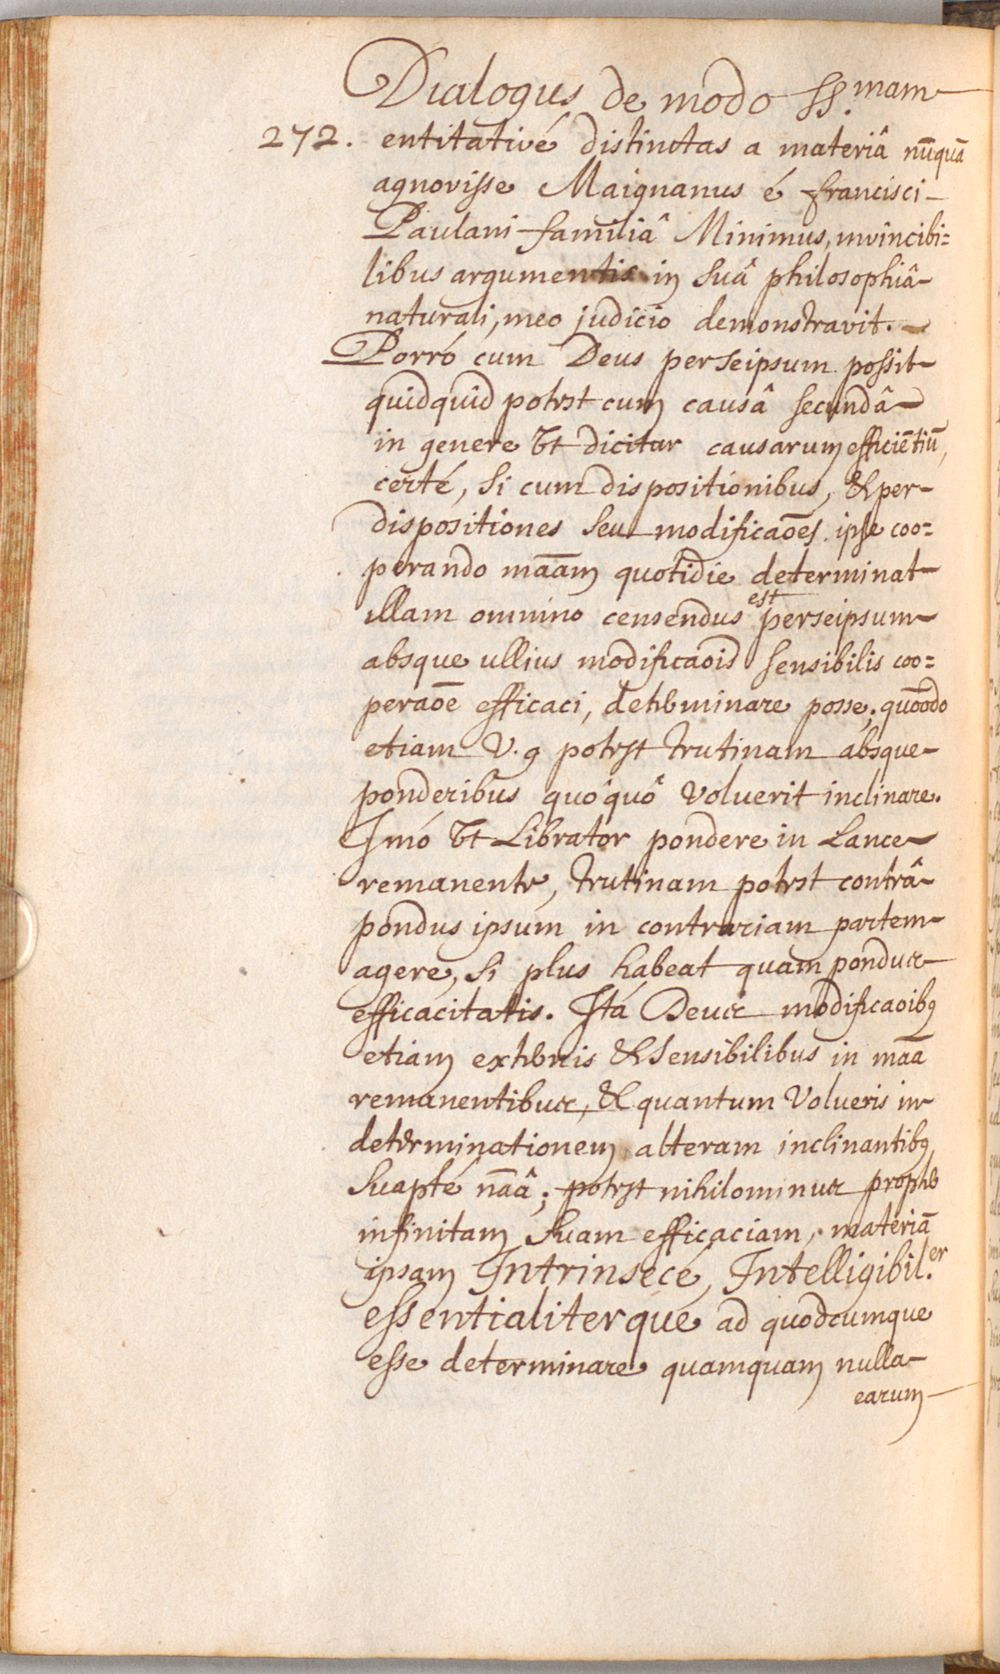 Dialogus de modo SS.mam
272. entitativé distinctas a materiâ nūquā
agnovisse Maignanus é Francisci
Paulani familiâ Minimus, invincibi=
libus argumentis in suâ philosophiâ
naturali, meo judicio demonstravit.
Porró cum Deus perseipsum possit
quidquid potest cum causâ secundâ
in genere Vt dicitur causarum efficiētiū,
certé, si cum dispositionibus, & per
dispositiones seu modificaōes ipse coo=
perando maām quotidie determinat
illam omnino censendus est perseipsum
absque ullius modificaois sensibilis coo=
peraōe efficaci, determinare posse, quōodo
etiam V.g potest trutinam absque
ponderibus quoquô voluerit inclinare.
Imó Vt Librator pondere in Lance
remanente, trutinam potest contrâ
pondus ipsum in contrariam partem
agere, si plus habeat quam pondus
efficacitatis. Itá Deus modificaoibq
etiam externis & sensibilibus in maā
remanentibus, & quantum Volueris in
determinationem alteram inclinantibq
suapté nāâ; potest nihilominus propter
infinitam suam efficaciam, materiā
ipsam Intrinsecé, Intelligibil.er
essentialiterqué ad quodcumque
esse determinare quamquam nulla
earum